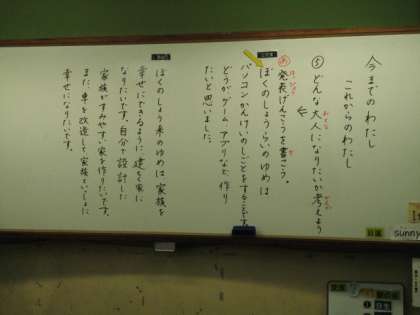 今までのわたし
これからのわたし
⑤ どんな大人になりたいか考えよう
おとな
かんが
発表げんこうを書こう。
はっぴょう
か
ぼくのしょうらいのゆめは
パソコンかんけいのしごとをすることです。
どうがゲーム、アプリなど、作り
たいと思いました。
ぼくのしょう来のゆめは家族を
幸せにできるように建ちく家に
なりたいです。自分で設計した
家族がすみやすい家を作りたいです。
また、車を改造して家族といっしょに
幸せになりたいです。
日直
sunny